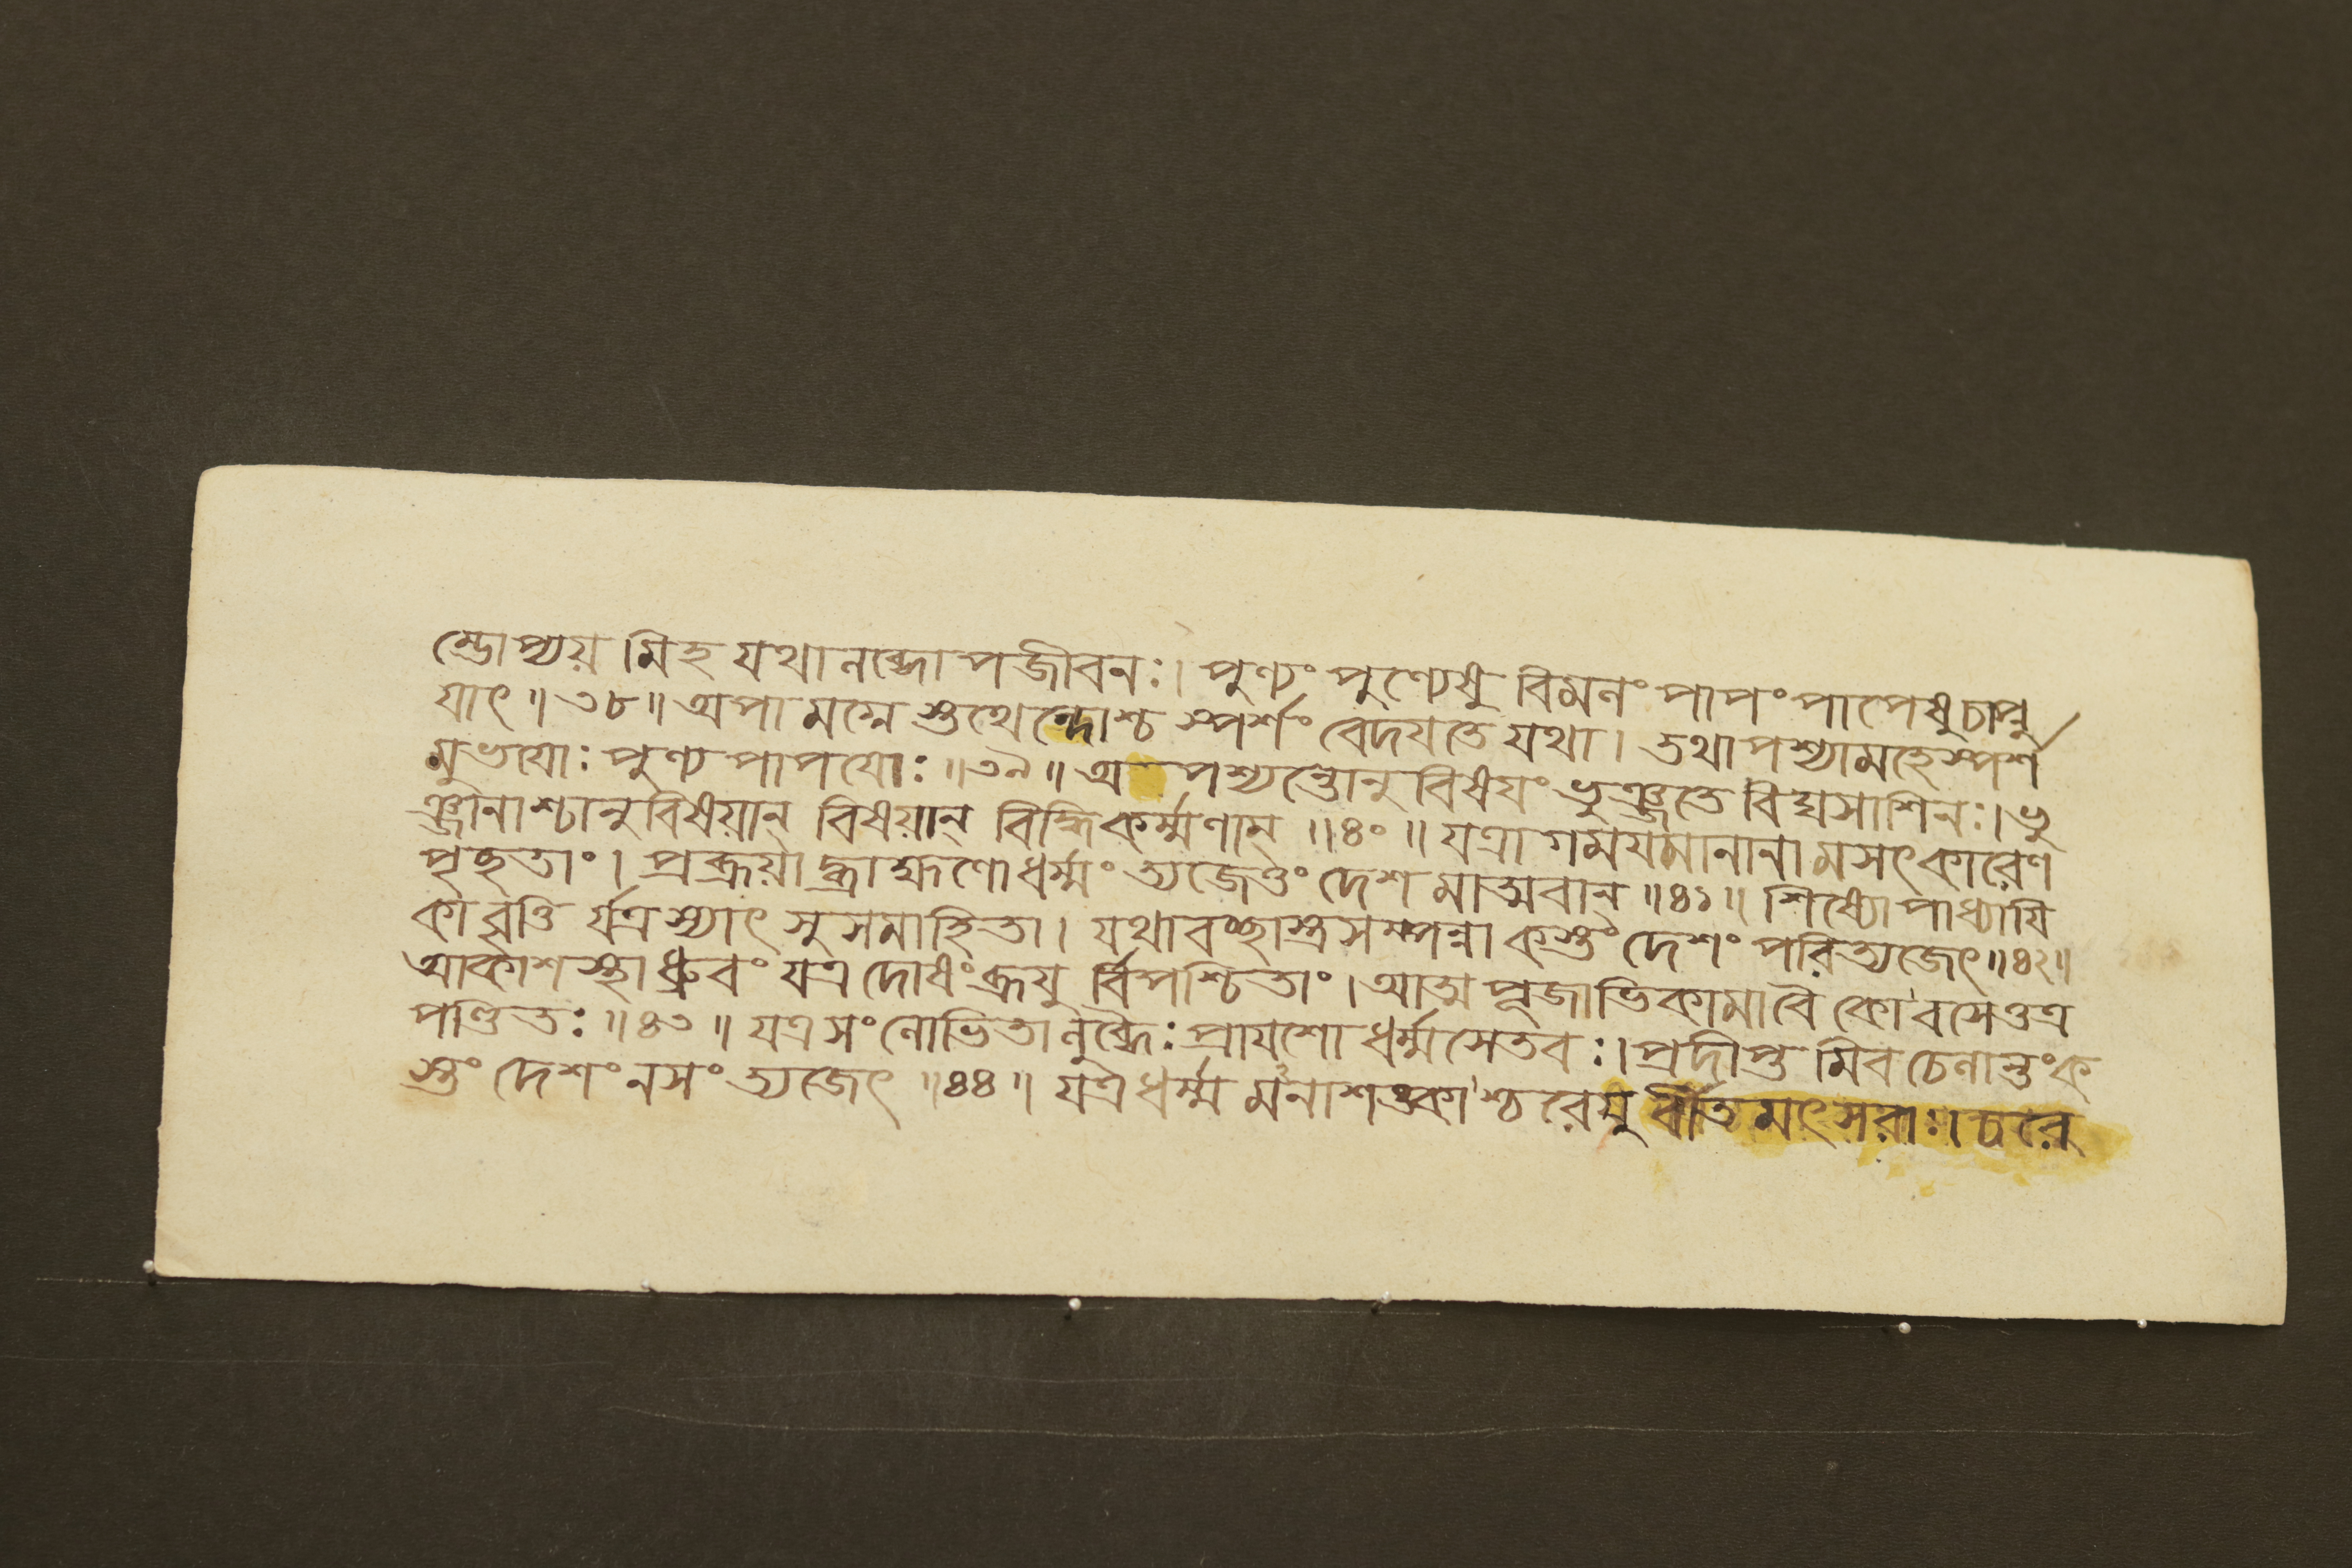 ন্তোপ্যয়মিহ যথানব্দোপজীবনঃ। পুণ্যং পুণ্যেষু বিমলং পাপং পাপেষু চাপ্নু
যাৎ॥৩৮॥ অপামগ্নেস্তথেন্দোশ্চ স্পর্শং বেদযতে যথা। তথা পশ্যামহে স্পর্শ
মুভযোঃ পুণ্যপাপযোঃ॥৩৯॥ অপশ্যন্তোনুবিষযং ভুঞ্জতে বিঘসাশিনঃ। ভু
ঞ্জানাশ্চানুবিষয়ান্ বিষয়ান্ বিদ্ধিকর্ম্মণাম্॥৪০॥ যত্রাগমযমানানামসৎকারেণ
পৃছতাং। প্রব্রূয়াদ্ব্রাহ্মণোধর্ম্মং ত্যজেত্তং দেশমাত্মবান্॥৪১॥ শিষ্যোপাধ্যাযি
কাবৃত্তি র্যত্রস্যাৎ সুসমাহিতা। যথাবৎছাস্ত্রসম্পন্না কস্তং দেশং পরিত্যজেৎ॥৪২॥
আকাশস্থাধ্রুবং যত্র দোষংব্রূযু র্বিপশ্চিতাং। আত্মপূজাভিকামাবৈ কোবসেত্তত্র
পণ্ডিতঃ॥৪৩॥ যত্রসংলোভিতালুব্ধৈঃ প্রাযশোধর্ম্মসেতবঃ। প্রদীপ্তমিবচেলান্তংক
স্তং দেশংনসংত্যজেৎ॥৪৪॥ যত্রধর্ম্মমনাশঙ্কাশ্চরেযু র্বীতমৎসরাঃ। চরে